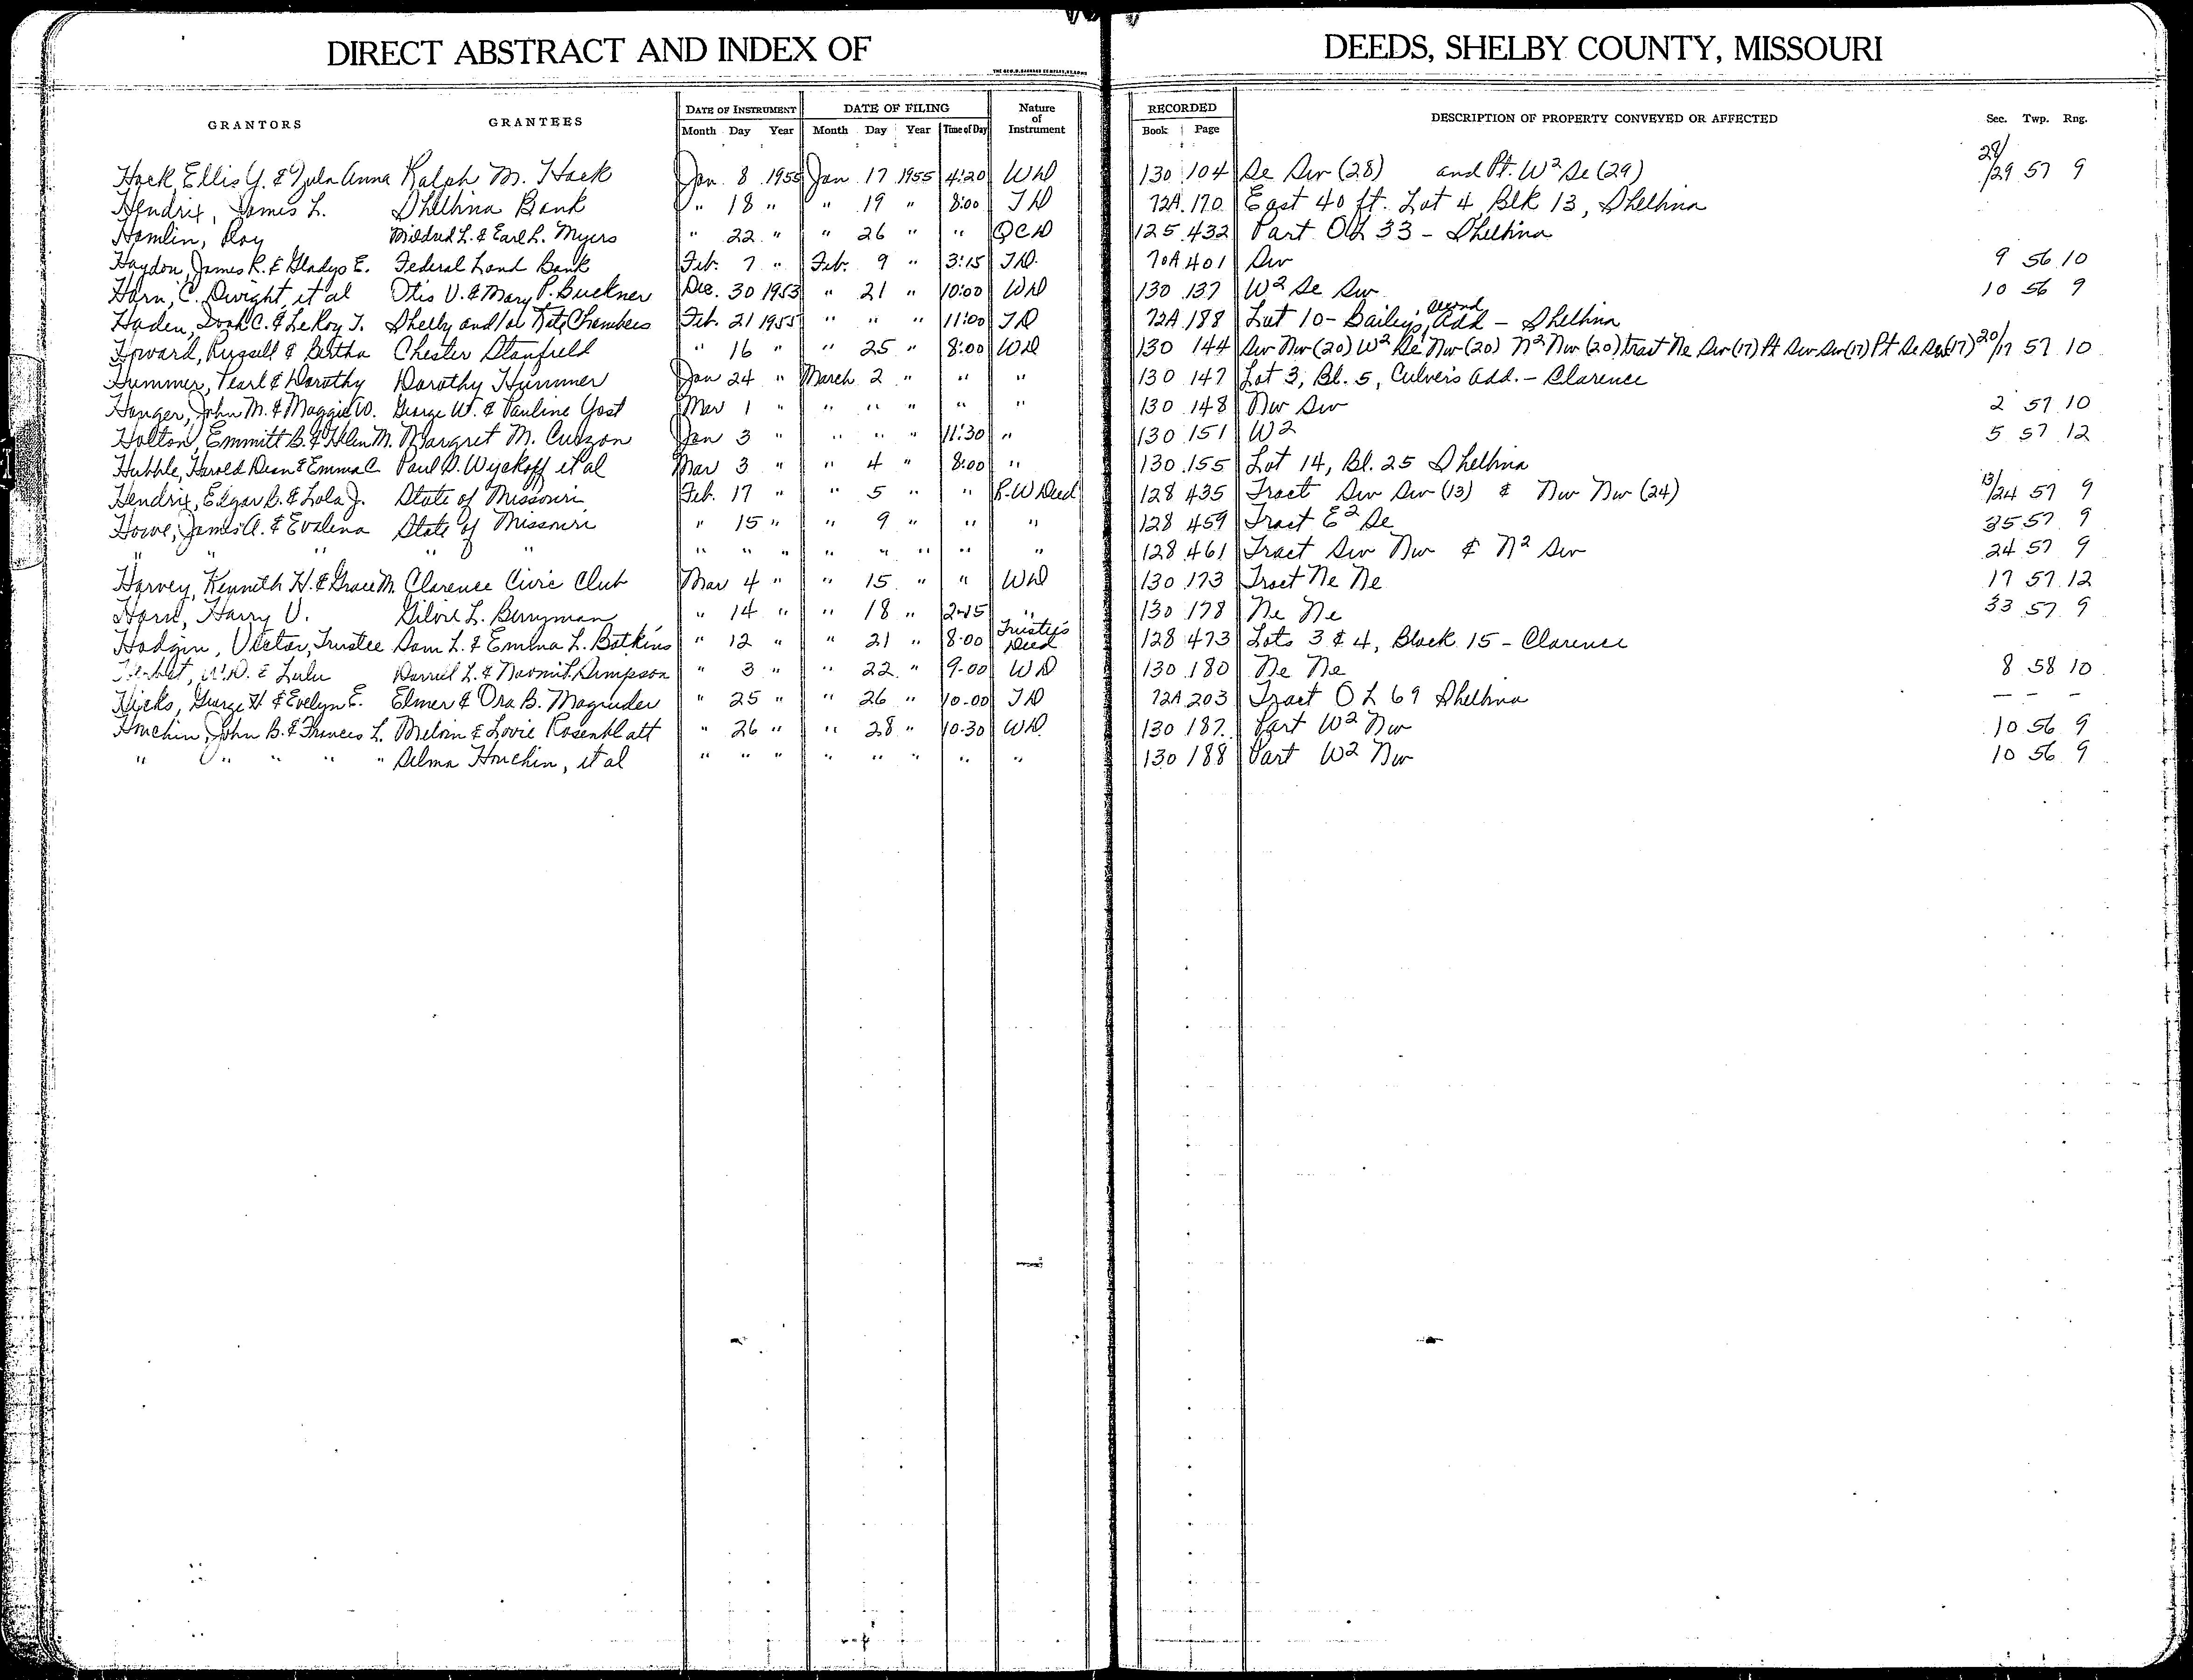 DIRECT ABSTRACT AND INDEX OF DEEDS, SHELBY COUNTY, MISSOURI
GRANTORS GRANTEES DATE OF INSTRUMENT DATE OF FILING Nature of Instrument RECORDED DESCRIPTION OF PROPERTY CONVEYED OR AFFECTED Sec. Twp. Rng.
Month Day Year Month Day Year Time of Day Book Page
Hack, Ellis Y. & Zula Anna Ralph M. Hack Jan. 8 1955 Jan 17 1955 4:20 WD 130 104 Se Sw (28) and Pt. W2 Se (29) 28/29 57 9
Hendrix, James L. Shelbina Bank " 18 " " 19 " 8:00 TD 72A 170 East 40 ft. Lot 4, Blk 13, Shelbina
Hamlin, Roy Mildred L. & Earl L. Myers " 22 " " 26 " " QCD 125 432 Part OL 33 - Shelbina
Haydon, James R. & Gladys E. Federal Land Bank Feb. 7 " Feb. 9 " 3:15 TD. 70A 401 Sw 9 56 10
Horn, C. Dwight, et al Otis V. & Mary P. Buckner Dec. 30 1953 " 21 " 10:00 WD 130 137 W2 Se Sw 10 56 9
Haden, C. & LeRoy T. Shelby and/or Kate Chambers Feb. 21 1955 " " " 11:00 TD 72A 188 Lot 10 - Bailey's second Add - Shelbina
Howard, Russell & Bertha Chester Stanfield " 16 " " 25 " 8:00 WD 130 144 Sw Nw (20) W2 Se Nw (20) N2 Nw (20) tract Ne Sw (17) Pt Sw Sw (17) Pt Se Sw (17) 20/17 57 10
Hummer, Pearl & Dorothy Dorothy Hummer Jan 24 " March 2 " " " 130 147 Lot 3, Bl. 5, Culver's Add. - Clarence
Hanger, John M. & Maggie W. George W. & Pauline Yost Mar 1 " " " " " " 130 148 Nw Sw 2 57 10
Holton, Emmitt B. & Helen M. Margret M. Curzon Jan 3 " " " " 11:30 " 130 151 W2 5 57 12
Hubble, Harold Dean & Emma C Paul D. Wyckoff et al Mar 3 " " 4 " 8:00 " 130 155 Lot 14, Bl. 25 Shelbina
Hendrix, Edgar B. & Lola J. State of Missouri Feb. 17 " " 5 " " R.W Deed 128 435 Tract Sw Sw (13) & Nw Nw (24) 13/24 57 9
Howe, James A. & Evalena State of Missouri " 15 " " 9 " " " 128 459 Tract E2 Se 35 57 9
" " " " " " " " " " " " " 128 461 Tract Sw Nw & N2 Sw 24 57 9
Harvey, Kenneth H. & Grace M. Clarence Civic Club Mar 4 " " 15 " " WD 130 173 Tract Ne Ne 17 57 12
Horn, Harry V. L. Berryman " 14 " " 18 " 2:15 " 130 178 Ne Ne 33 57 9
Hodgin, Victor, Trustee Sam L. & Emma L. Botkins " 12 " " 21 " 8:00 Trustee's Deed 128 473 Lots 3 & 4, Block 15 - Clarence
& Lulu Darrell L. & Naomi L. Simpson " 3 " " 22 " 9:00 WD 130 180 Ne Ne 8 58 10
Hicks, George H & Evelyn E. Elmer & Ora B. Magruder " 25 " " 26 " 10:00 TD 72A 203 Tract OL 69 Shelbina - - -
Houchin, John B. & Frances L. Melvin & Lovie Rosenblatt " 26 " " 28 " 10:30 WD. 130 187 Part W2 Nw 10 56 9
" " " " " Selma Houchin, et al " " " " " " " " 130 188 Part W2 Nw 10 56 9